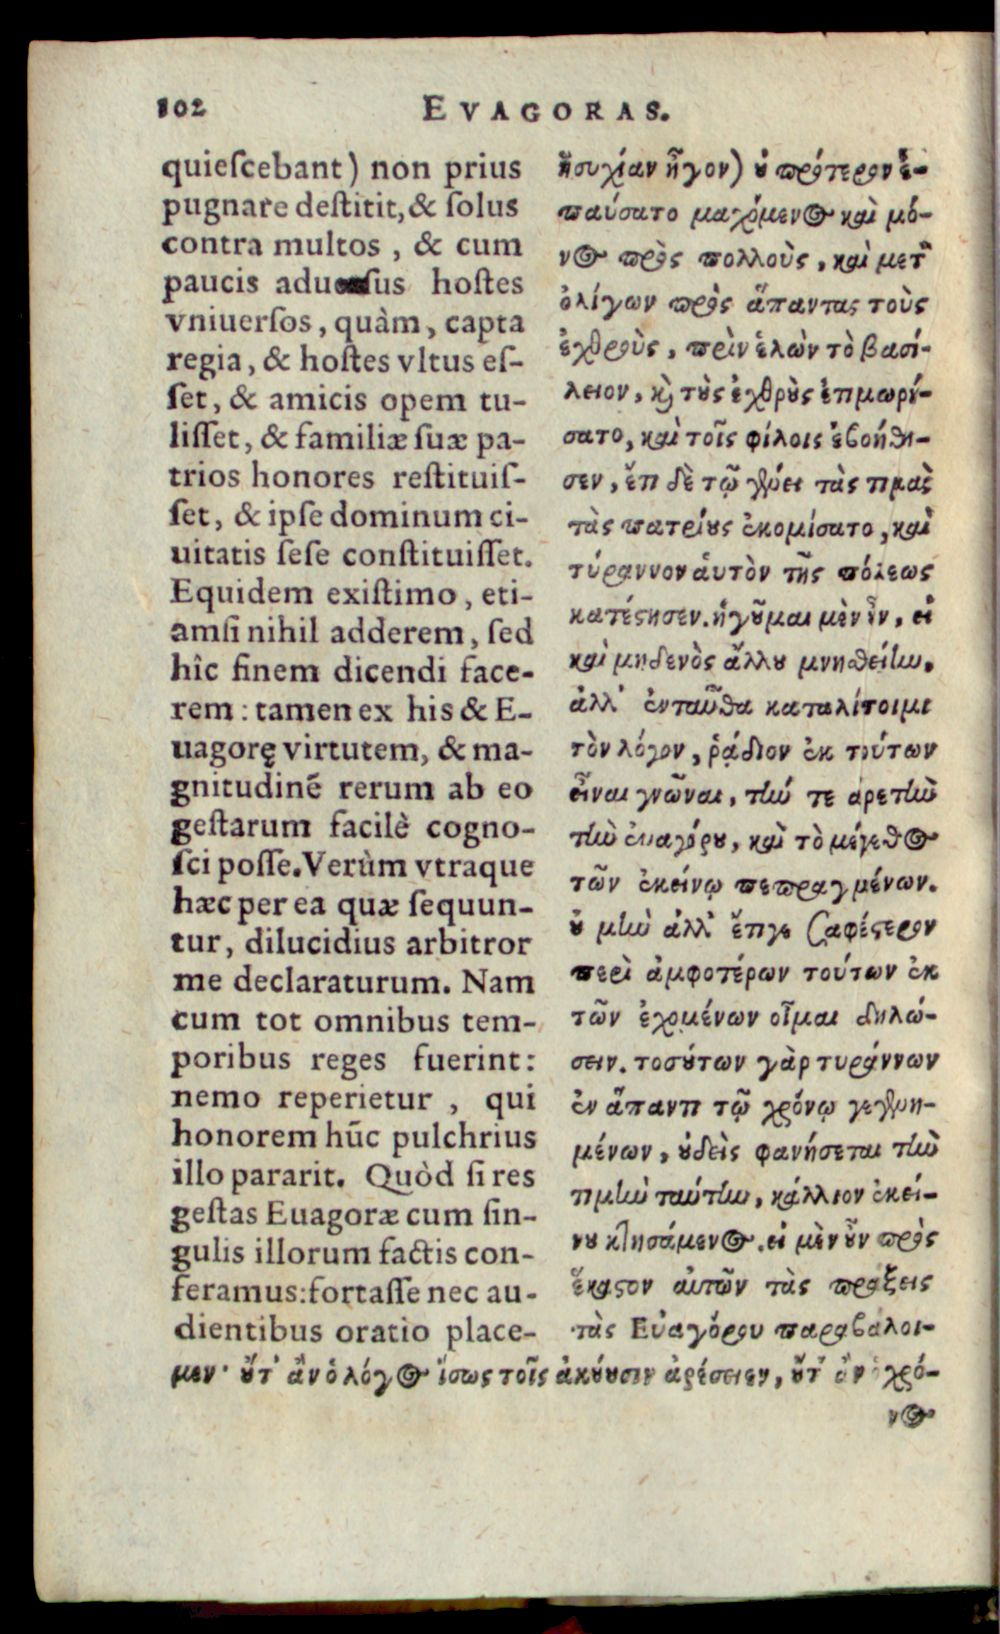 102 EVAGORAS.
quieſcebant) non prius
pugnare deſtitit, & ſolus
contra multos, & cum
paucis aduerſus hoſtes
vniuerſos, quàm, capta
regia, & hoſtes vltus eſ-
ſet, & amicis opem tu-
liſſet, & familiæ ſuæ pa-
trios honores reſtituiſ-
ſet, & ipſe dominum ci-
uitatis ſeſe conſtituiſſet.
Equidem exiſtimo, eti-
amſi nihil adderem, ſed
hîc finem dicendi face-
rem: tamen ex his & E-
uagorę virtutem, & ma-
gnitudinē rerum ab eo
geſtarum facilè cogno-
ſci poſſe. Verùm vtraque
hæc per ea quæ ſequun-
tur, dilucidius arbitror
me declaraturum. Nam
cum tot omnibus tem-
poribus reges fuerint:
nemo reperietur, qui
honorem hūc pulchrius
illo pararit. Quòd ſi res
geſtas Euagoræ cum ſin-
gulis illorum factis con-
feramus: fortaſſe nec au-
dientibus oratio place-
ἡσυχίαν ἦγον) οὐ πρότερον ἐ-
παύσατο μαχόμενος καὶ μό-
νος πρὸς πολλοὺς, καὶ μετ'
ὀλίγων πρὸς ἅπαντας τοὺς
ἐχθροὺς, πρὶν ἑλὼν τὸ βασί-
λειον, καὶ τοὺς ἐχθροὺς ἐτιμωρή-
σατο, καὶ τοῖς φίλοις ἐβοήθη-
σεν, ἔτι δὲ τῷ γένει τὰς τιμὰς
τὰς πατρίους ἐκομίσατο, καὶ
τύραννον αὑτὸν τῆς πόλεως
κατέστησεν. ἡγοῦμαι μὲν οὖν, εἰ
καὶ μηδενὸς ἄλλου μνηθείην,
ἀλλ' ἐνταῦθα καταλίποιμι
τὸν λόγον, ῥᾴδιον ἐκ τούτων
εἶναι γνῶναι, τήν τε ἀρετὴν
τὴν ἐυαγόρου, καὶ τὸ μέγεθος
τῶν ἐκείνῳ πεπραγμένων.
οὐ μὴν ἀλλ' ἔτι γε σαφέστερον
περὶ ἀμφοτέρων τούτων ἐκ
τῶν ἐχομένων οἶμαι δηλώ-
σειν. τοσούτων γὰρ τυράννων
ἐν ἅπαντι τῷ χρόνῳ γεγενη-
μένων, οὐδεὶς φανήσεται τὴν
τιμὴν ταύτην, κάλλιον ἐκεί-
νου κτησάμενος. εἰ μὲν οὖν πρὸς
ἕκαστον αὐτῶν τὰς πράξεις
τὰς Εὐαγόρου παραβάλοι-
μεν· οὔτ' ἂν ὁ λόγος ἴσως τοῖς ἀκούουσιν ἀρέσειεν, οὔτ' ἂν ὁ χρό-
νος